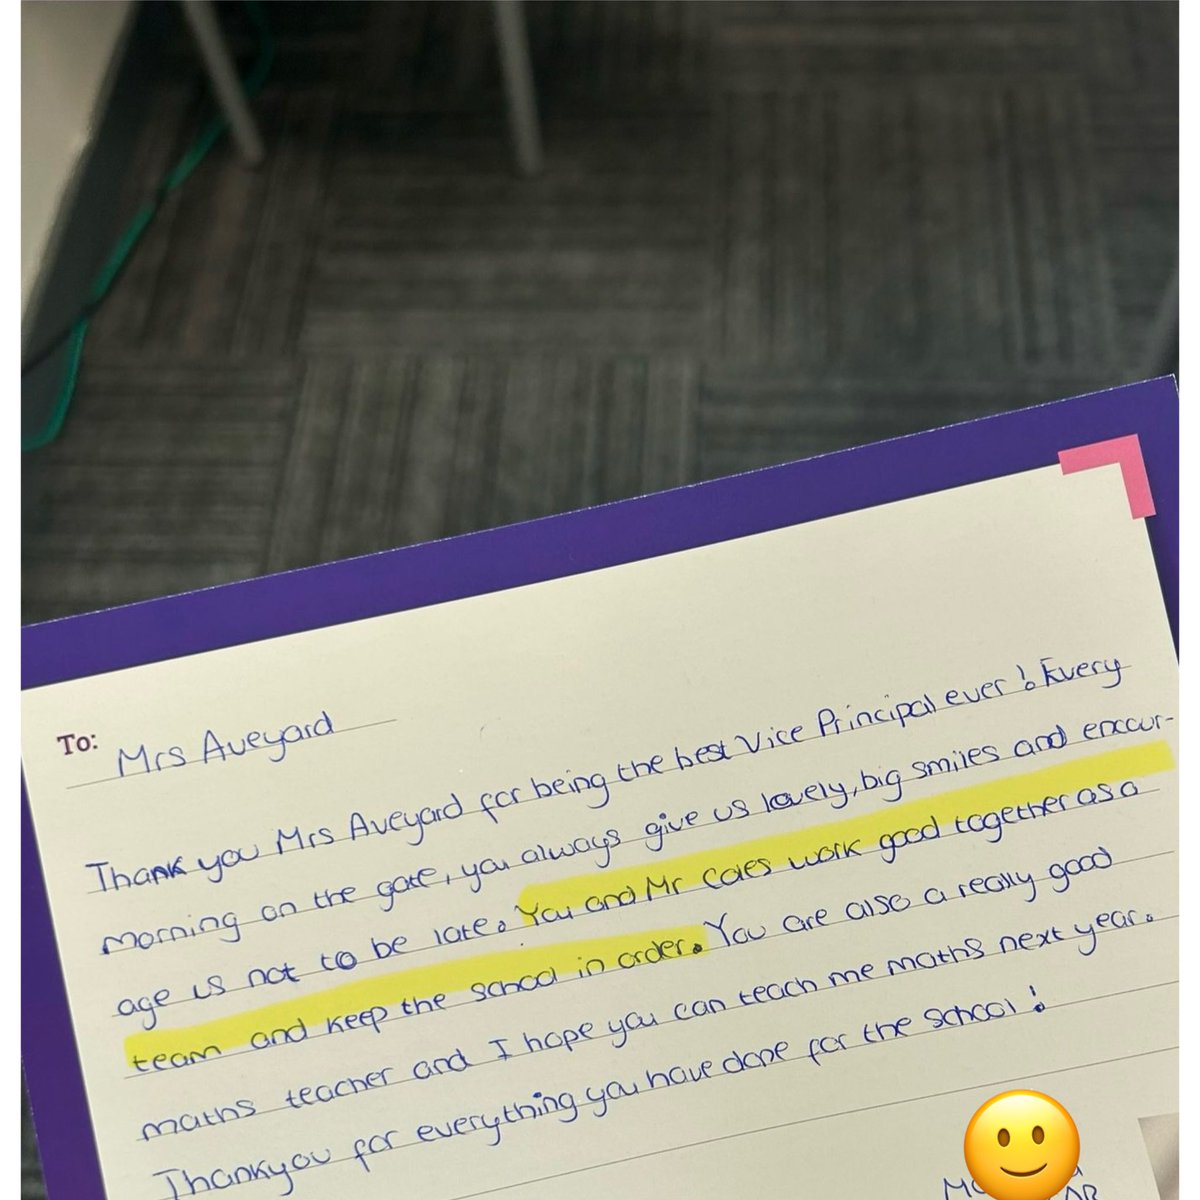 To: Mrs Aveyard
Thank you Mrs Aveyard for being the best Vice Principal ever! Every
morning on the gate, you always give us lovely, big smiles and encour-
age us not to be late. You and Mr Coles work good together as a
team and keep the school in order. You are also a really good
maths teacher and I hope you can teach me maths next year.
Thankyou for everything you have done for the school!